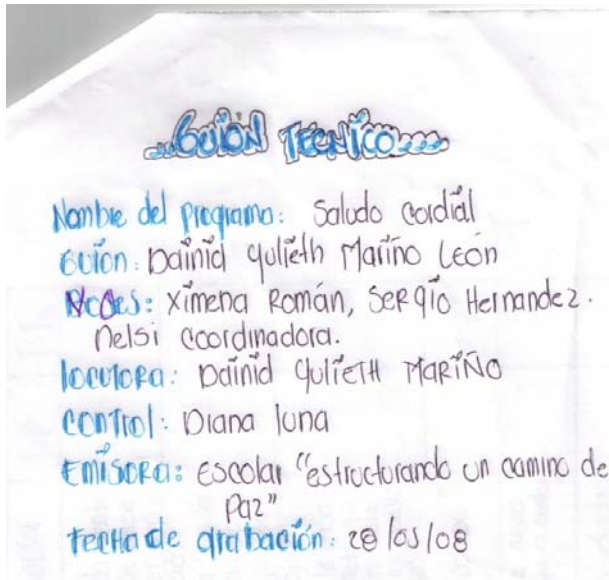 ...Guión Tecnico...
Nombre del programa: Saludo cordial
Guión: Dainid Yulieth Mariño León
Voces: Ximena Román, Sergio Hernandez.
Nelsi Coordinadora.
locutora: Dainid Yulieth Mariño
Control: Diana luna
Emisora: Escolar "estructurando un camino de
Paz"
Fecha de grabación: 28/05/08